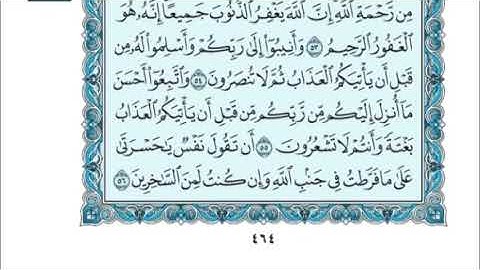 مِن رَّحْمَةِ ٱللَّهِ إِنَّ ٱللَّهَ يَغْفِرُ ٱلذُّنُوبَ جَمِيعًا إِنَّهُۥ هُوَ
ٱلْغَفُورُ ٱلرَّحِيمُ ٥٣ وَأَنِيبُوٓا۟ إِلَىٰ رَبِّكُمْ وَأَسْلِمُوا۟ لَهُۥ مِن
قَبْلِ أَن يَأْتِيَكُمُ ٱلْعَذَابُ ثُمَّ لَا تُنصَرُونَ ٥٤ وَٱتَّبِعُوٓا۟ أَحْسَنَ
مَآ أُنزِلَ إِلَيْكُم مِّن رَّبِّكُم مِّن قَبْلِ أَن يَأْتِيَكُمُ ٱلْعَذَابُ
بَغْتَةً وَأَنتُمْ لَا تَشْعُرُونَ ٥٥ أَن تَقُولَ نَفْسٌ يَٰحَسْرَتَىٰ
عَلَىٰ مَا فَرَّطتُ فِى جَنۢبِ ٱللَّهِ وَإِن كُنتُ لَمِنَ ٱلسَّٰخِرِينَ ٥٦
٤٦٤